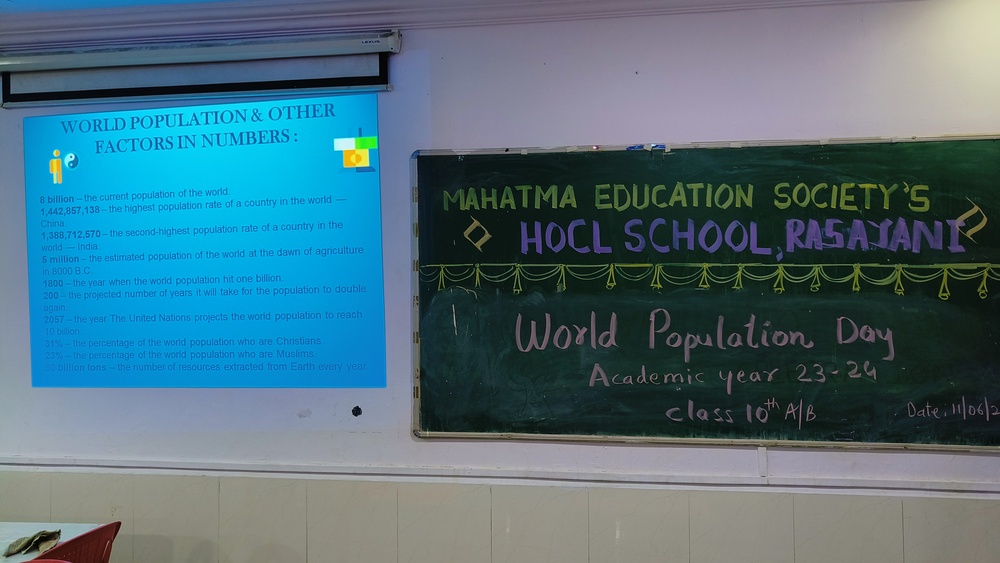 LEXUS
WORLD POPULATION & OTHER
FACTORS IN NUMBERS :
8 billion – the current population of the world.
1,442,857,138 – the highest population rate of a country in the world —
China.
1,388,712,570 – the second-highest population rate of a country in the
world — India.
5 million – the estimated population of the world at the dawn of agriculture
in 8000 B.C.
1800 – the year when the world population hit one billion.
200 – the projected number of years it will take for the population to double
again.
2057 – the year The United Nations projects the world population to reach
10 billion.
31% – the percentage of the world population who are Christians.
23% – the percentage of the world population who are Muslims.
billion tons – the number of resources extracted from Earth every year.
MAHATMA EDUCATION SOCIETY'S
HOCL SCHOOL, RASAYANI
World Population Day
Academic year 23-24
class 10th A/B
Date: 11/06/2